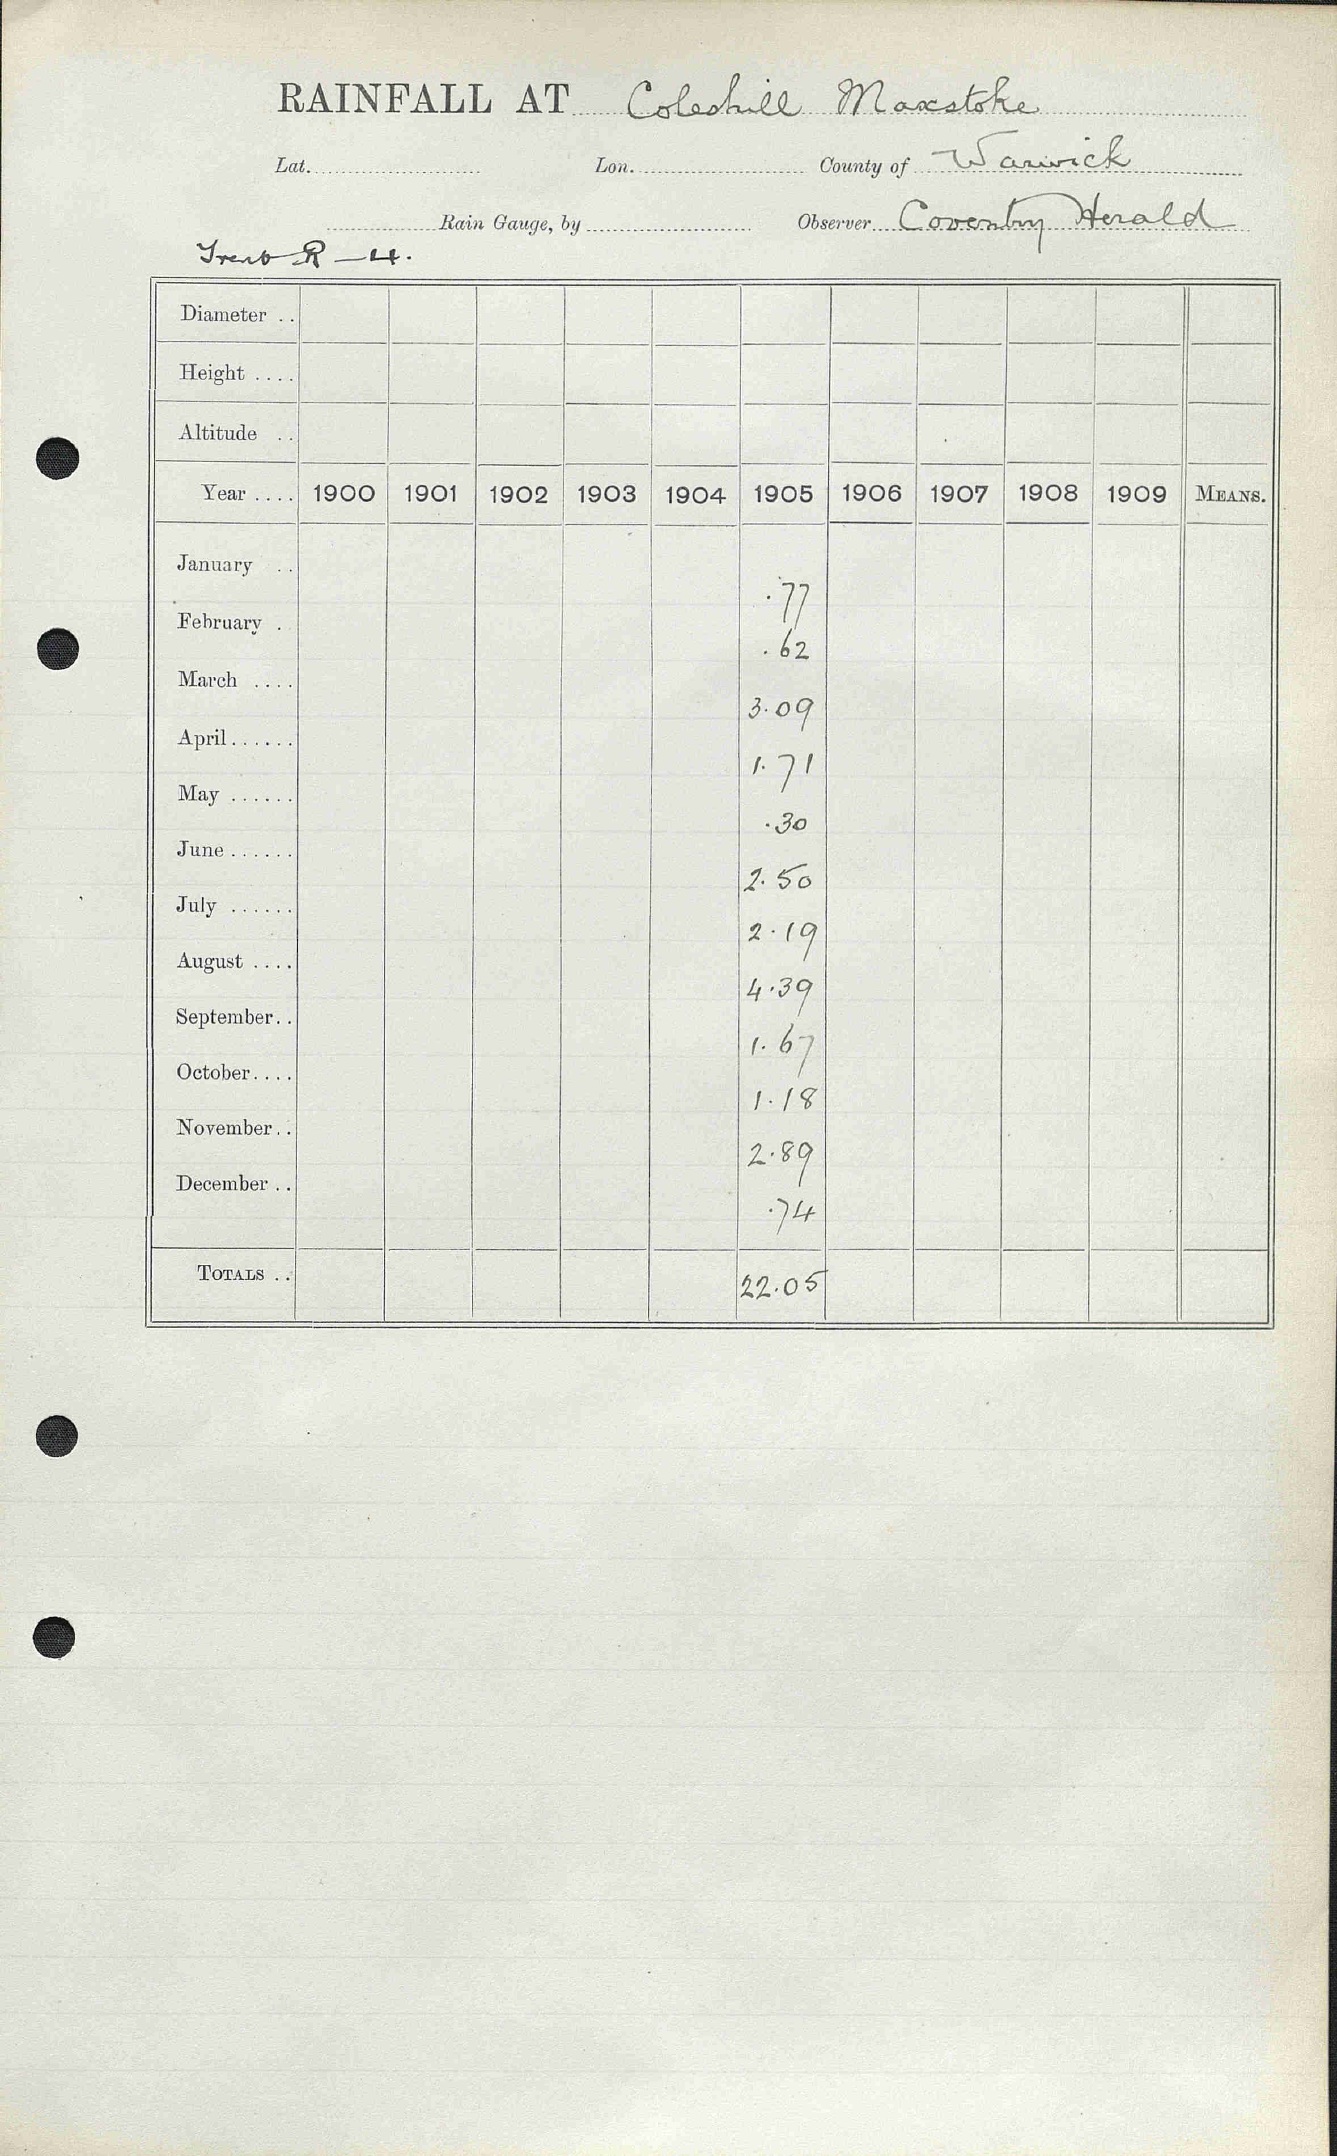 RAINFALL AT Coleshill Maxstoke
Lat. Lon. County of Warwick
Rain Gauge, by Observer Coventry Herald
Trent R - 4.
Diameter ..
Height ....
Altitude ..
Year .... 1900 1901 1902 1903 1904 1905 1906 1907 1908 1909 MEANS.
January .. .77
February . .62
March .... 3.09
April...... 1.71
May ...... .30
June ...... 2.50
July ...... 2.19
August .... 4.39
September.. 1.67
October.... 1.18
November.. 2.89
December .. .74
TOTALS .. 22.05